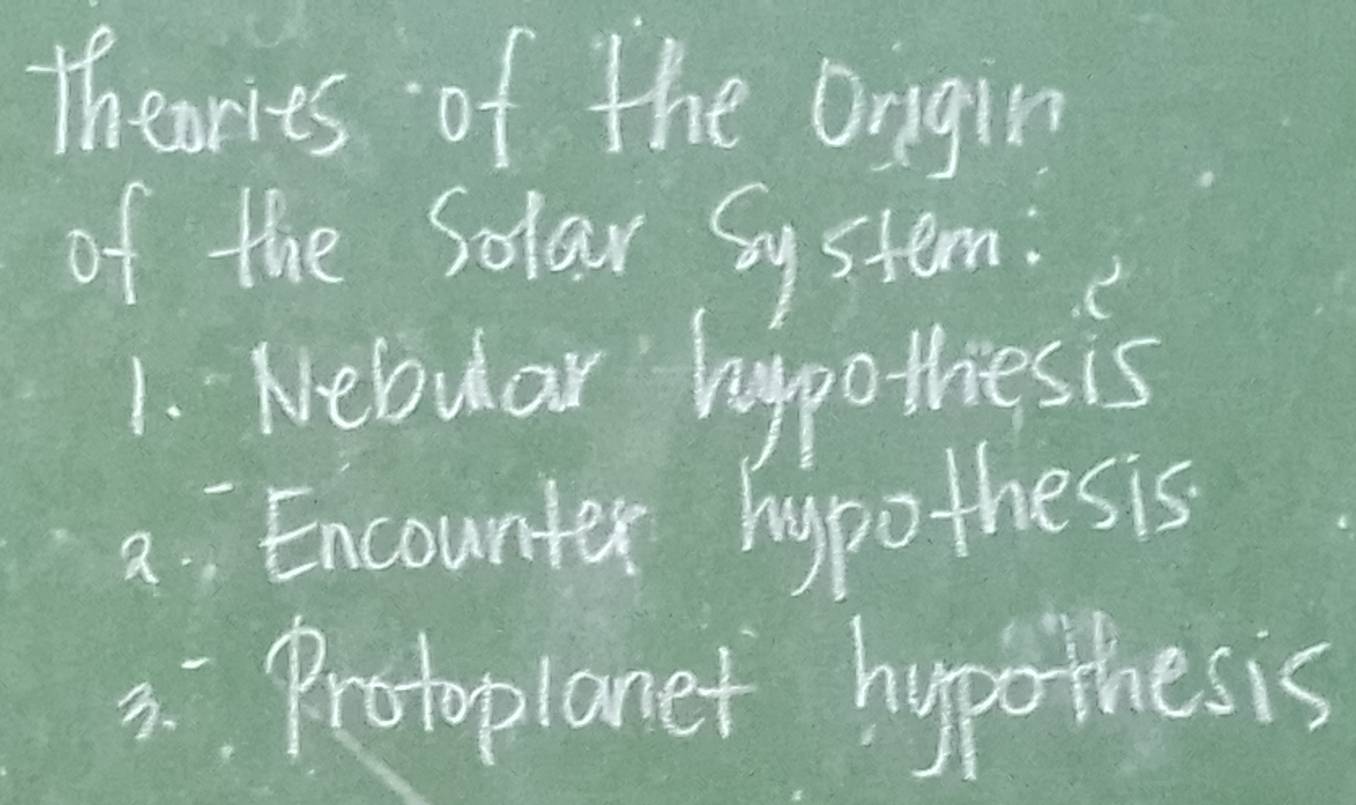 Theories of the Origin
of the Solar System:
1. Nebular hypothesis
2. Encounter hypothesis
3. Protoplanet hypothesis